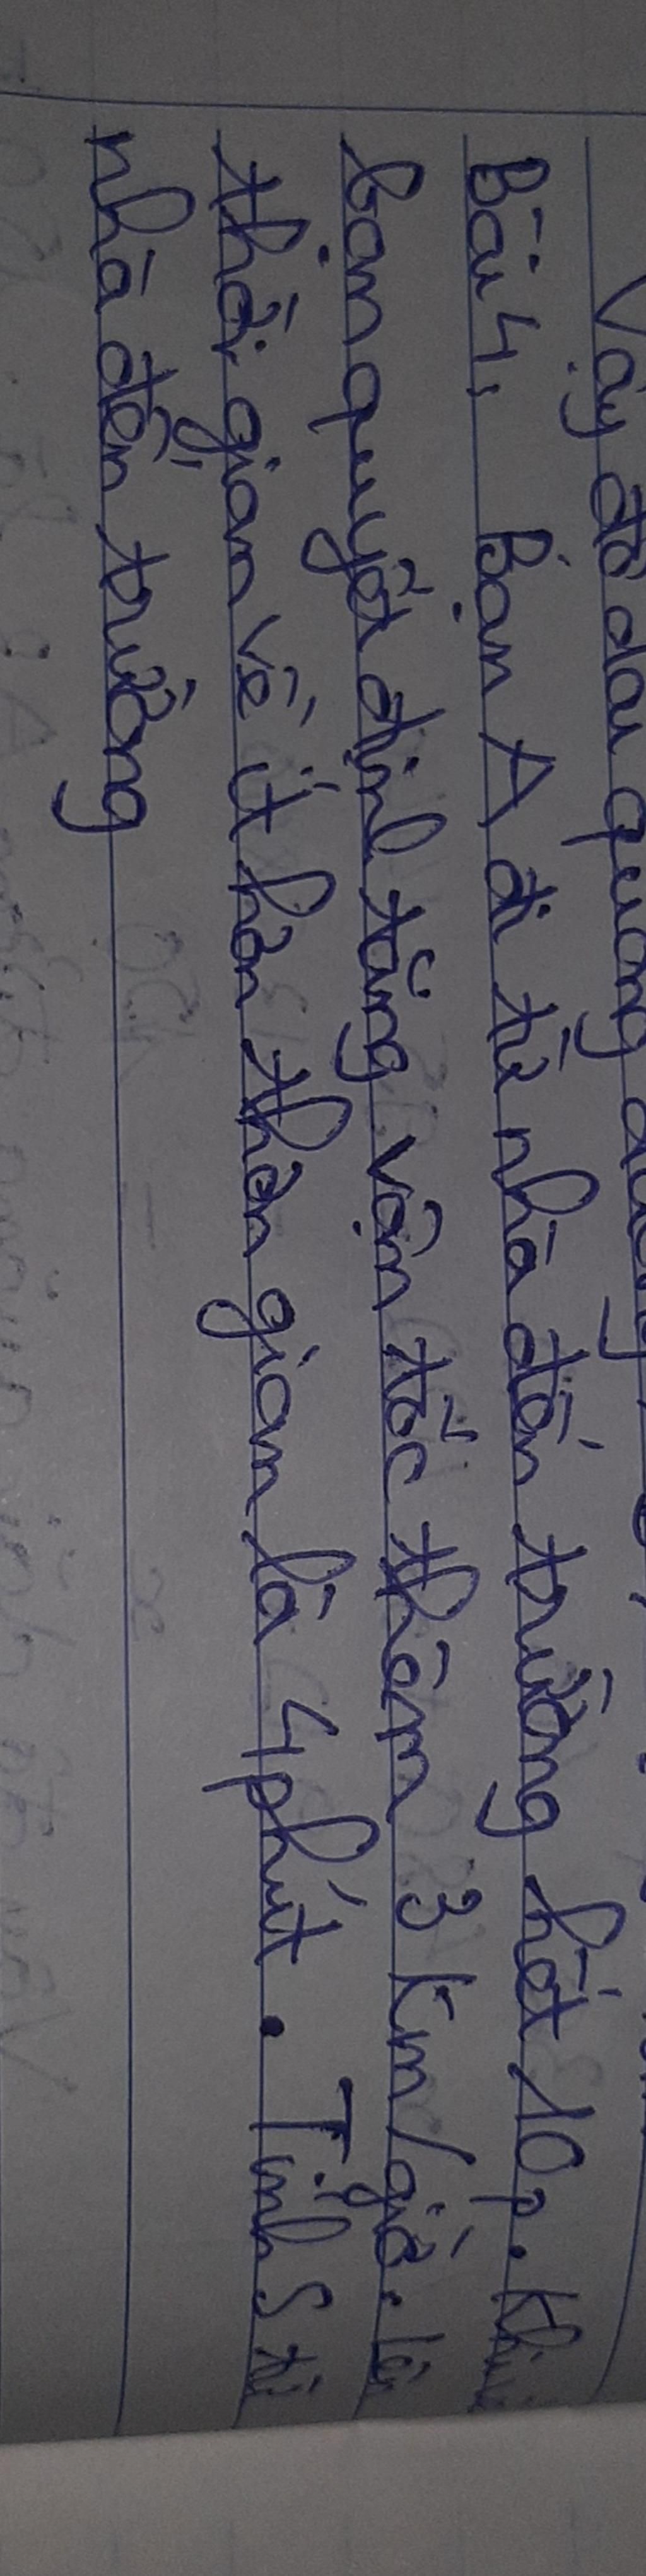 Vậy độ dài quãng
Bài 4, Bạn A đi từ nhà đến trường hết 10p. Khi
bạn quyết định tăng vận tốc thêm 3 km/giờ.
thời gian về ít hơn thời gian là 4 phút. Tính S từ
nhà đến trường